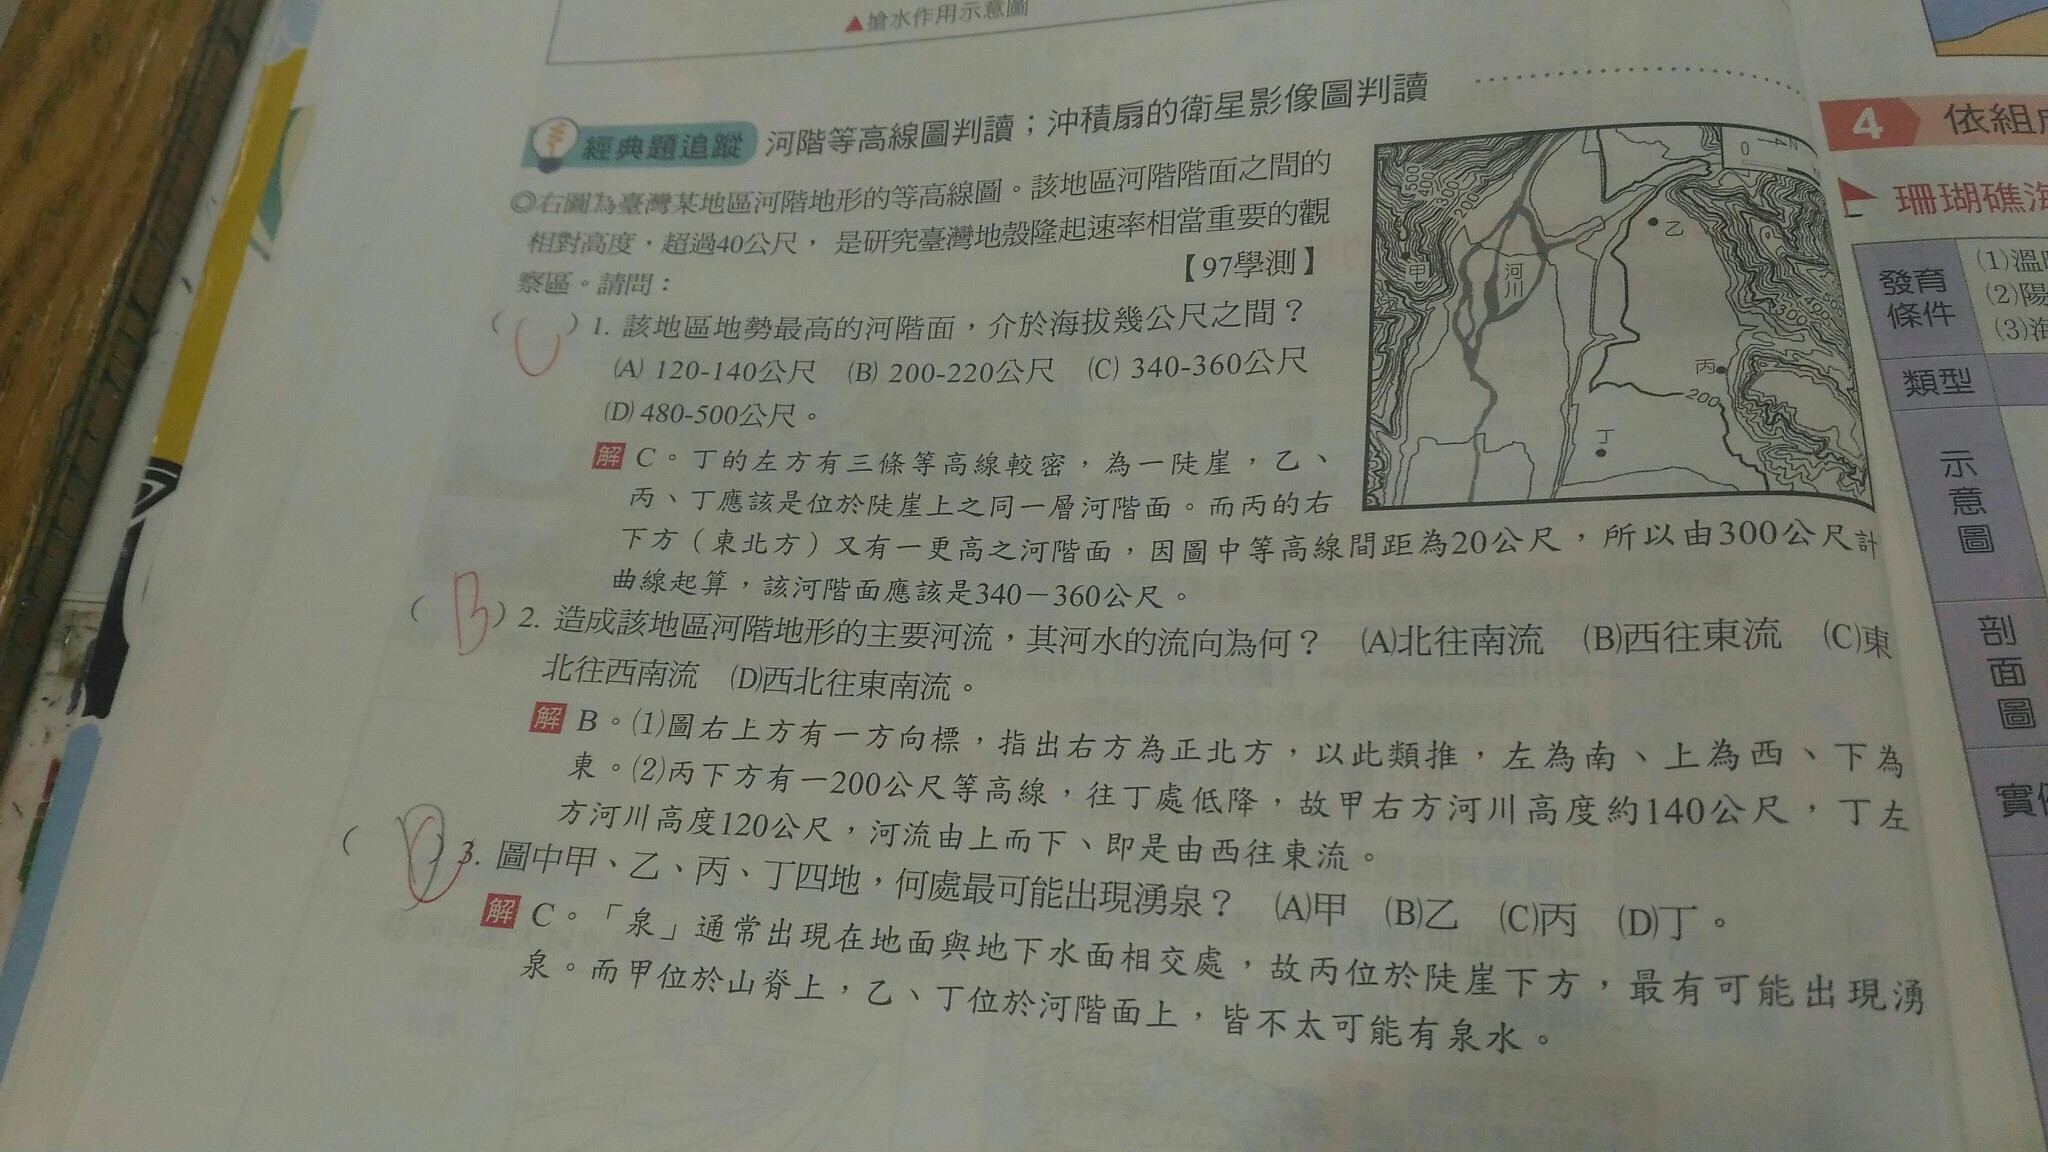 ▲搶水作用示意圖
經典題追蹤 河階等高線圖判讀；沖積扇的衛星影像圖判讀
◎右圖為臺灣某地區河階地形的等高線圖。該地區河階階面之間的
相對高度，超過40公尺，是研究臺灣地殼隆起速率相當重要的觀
察區。請問：
【97學測】
(C)1. 該地區地勢最高的河階面，介於海拔幾公尺之間？
(A) 120-140公尺 (B) 200-220公尺 (C) 340-360公尺
(D) 480-500公尺。
解 C。丁的左方有三條等高線較密，為一陡崖，乙、
丙、丁應該是位於陡崖上之同一層河階面。而丙的右
下方（東北方）又有一更高之河階面，因圖中等高線間距為20公尺，所以由300公尺計
曲線起算，該河階面應該是340－360公尺。
(B)2. 造成該地區河階地形的主要河流，其河水的流向為何？ (A)北往南流 (B)西往東流 (C)東
北往西南流 (D)西北往東南流。
解 B。(1)圖右上方有一方向標，指出右方為正北方，以此類推，左為南、上為西、下為
東。(2)丙下方有一200公尺等高線，往丁處低降，故甲右方河川高度約140公尺，丁左
方河川高度120公尺，河流由上而下、即是由西往東流。
3. 圖中甲、乙、丙、丁四地，何處最可能出現湧泉？ (A)甲 (B)乙 (C)丙 (D)丁。
解 C。「泉」通常出現在地面與地下水面相交處，故丙位於陡崖下方，最有可能出現湧
泉。而甲位於山脊上，乙、丁位於河階面上，皆不太可能有泉水。
500
400
300
200
甲
河川
乙
丙
200
丁
0
4 依組
珊瑚礁海
發育條件
(1)溫
(2)陽
(3)海
類型
示意圖
剖面圖
實